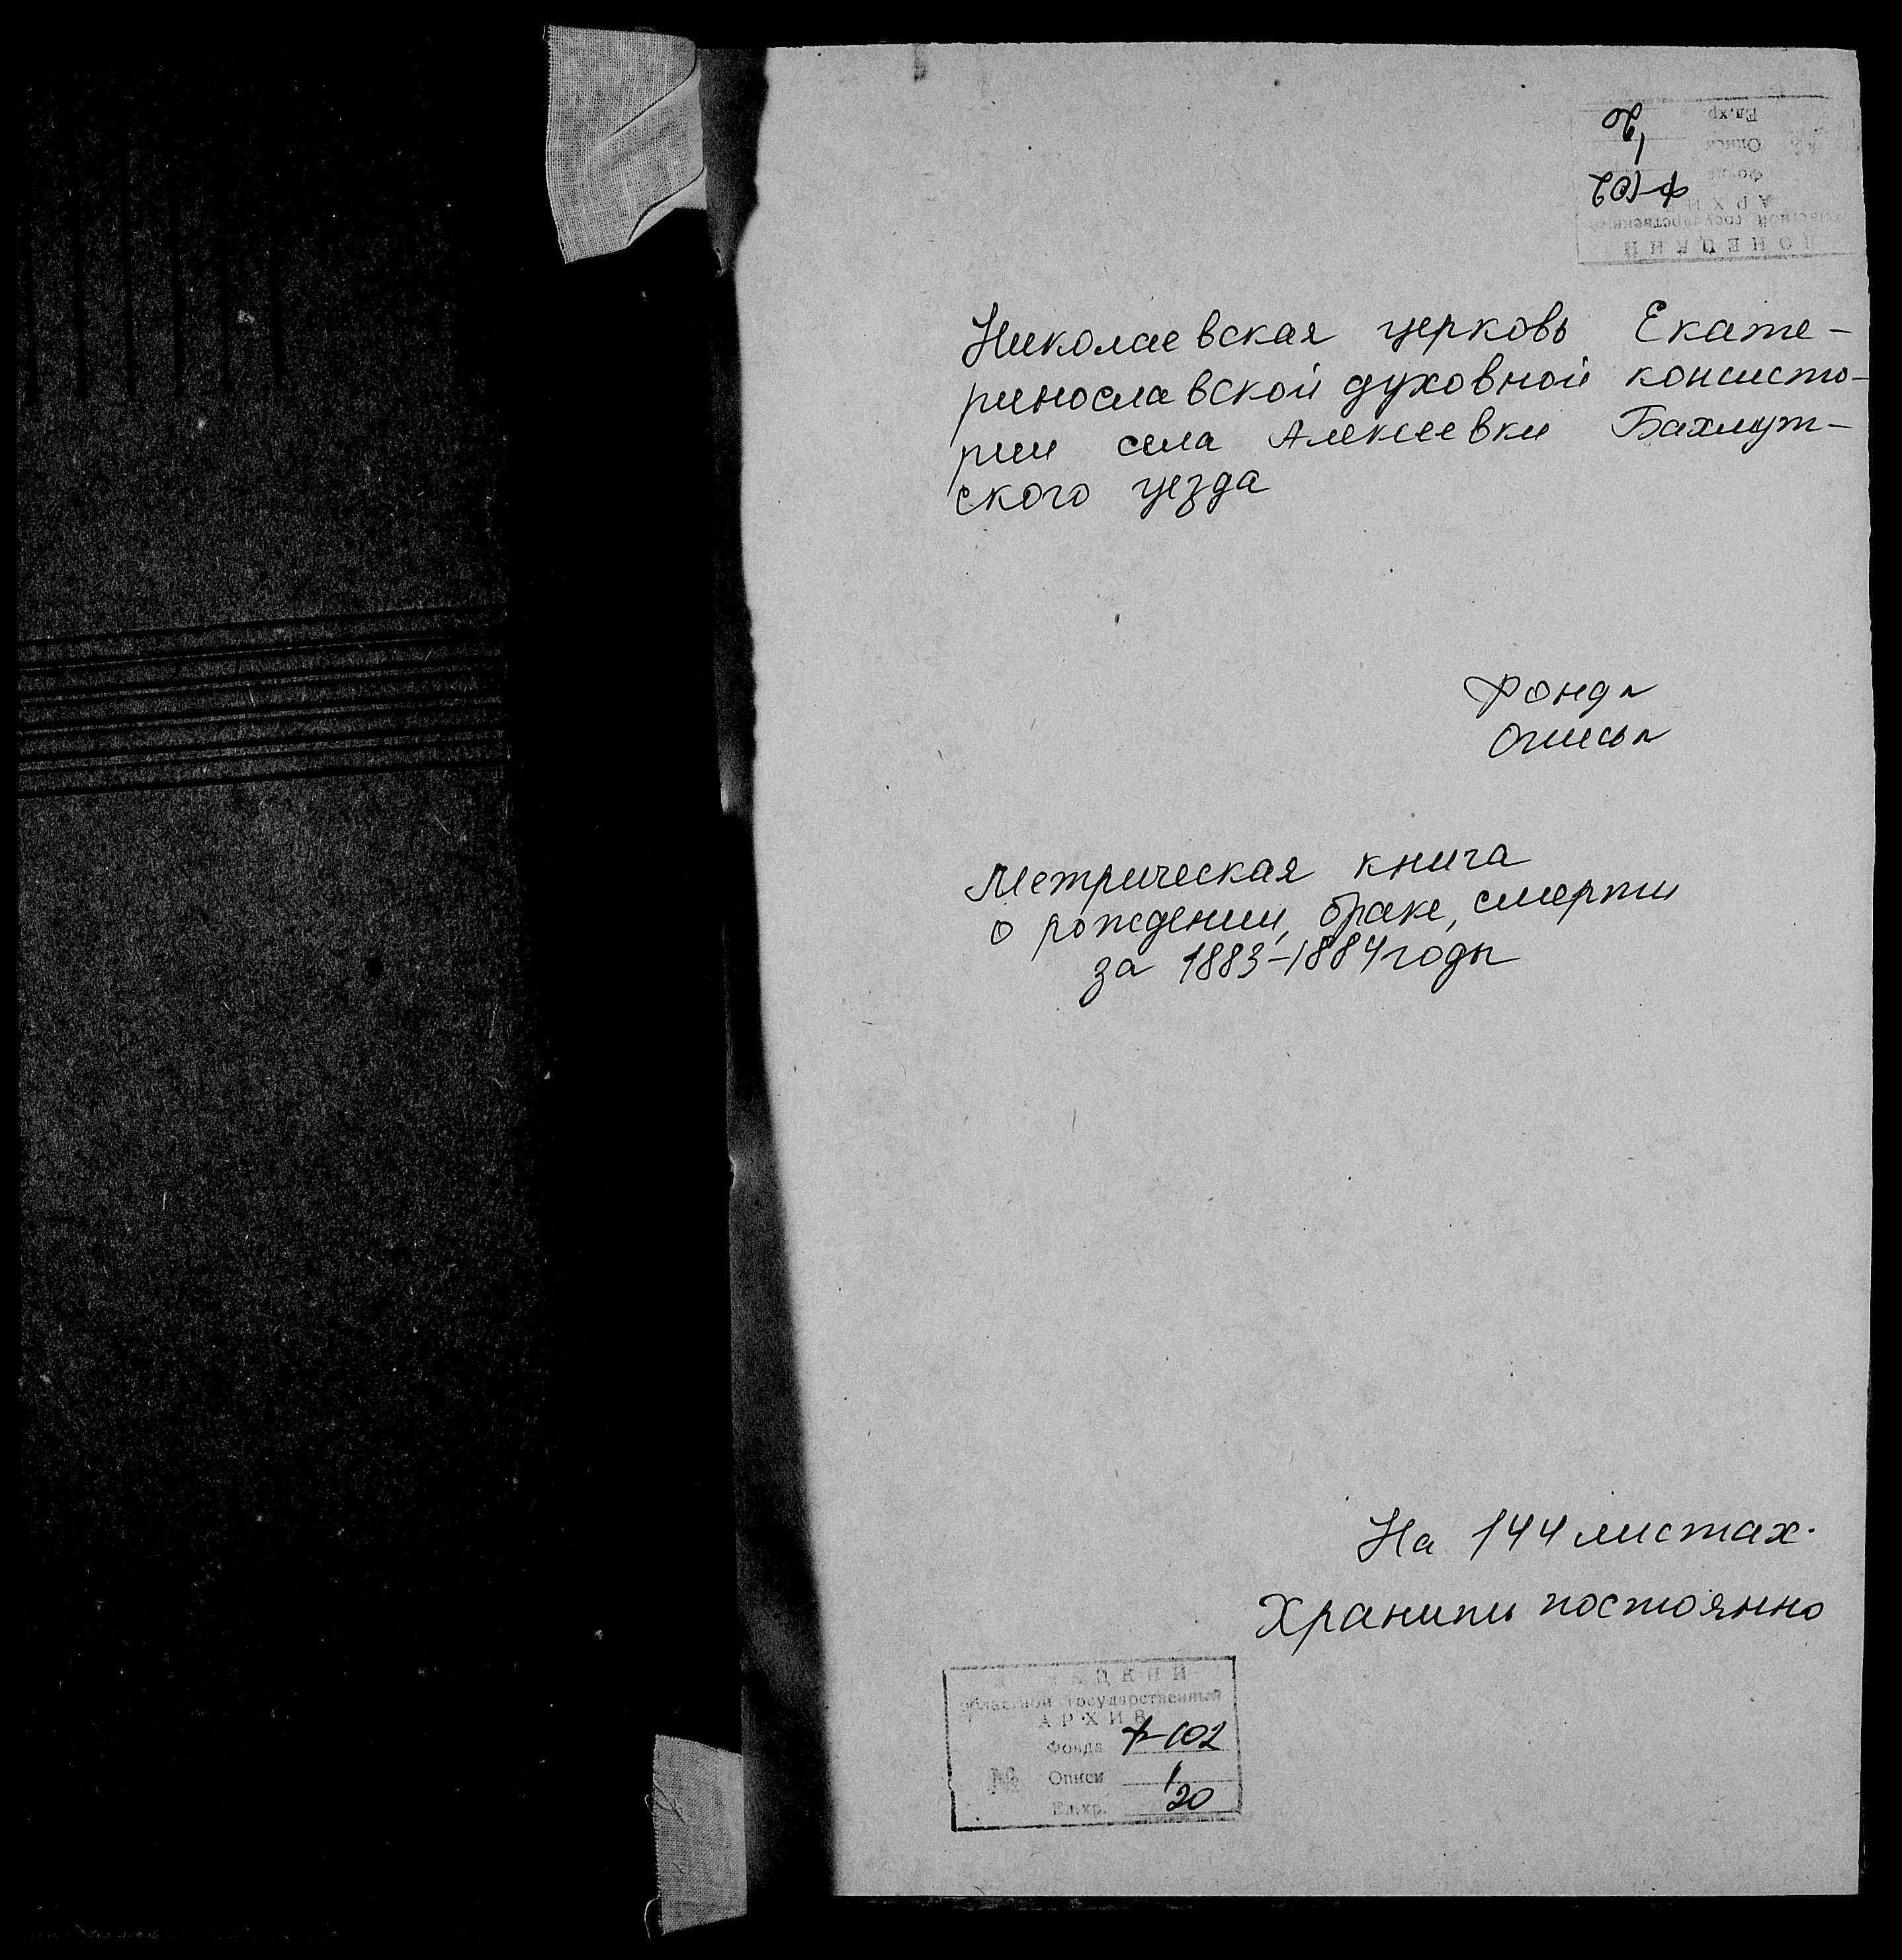 ДОНЕЦКИЙ
областной государственный
АРХИВ
Фонда ф-102
Описи 1
Ед.хр. 20
Николаевская церковь Екате-
ринославской духовной консисто-
рии села Алексеевки Бахмут-
ского уезда
Фонд №
Опись №
Метрическая книга
о рождении, браке, смерти
за 1883-1884 годы
На 144 листах.
Хранить постоянно
областной государственный
АРХИВ
Фонда ф-102
№ Описи 1
Ед.хр. 20